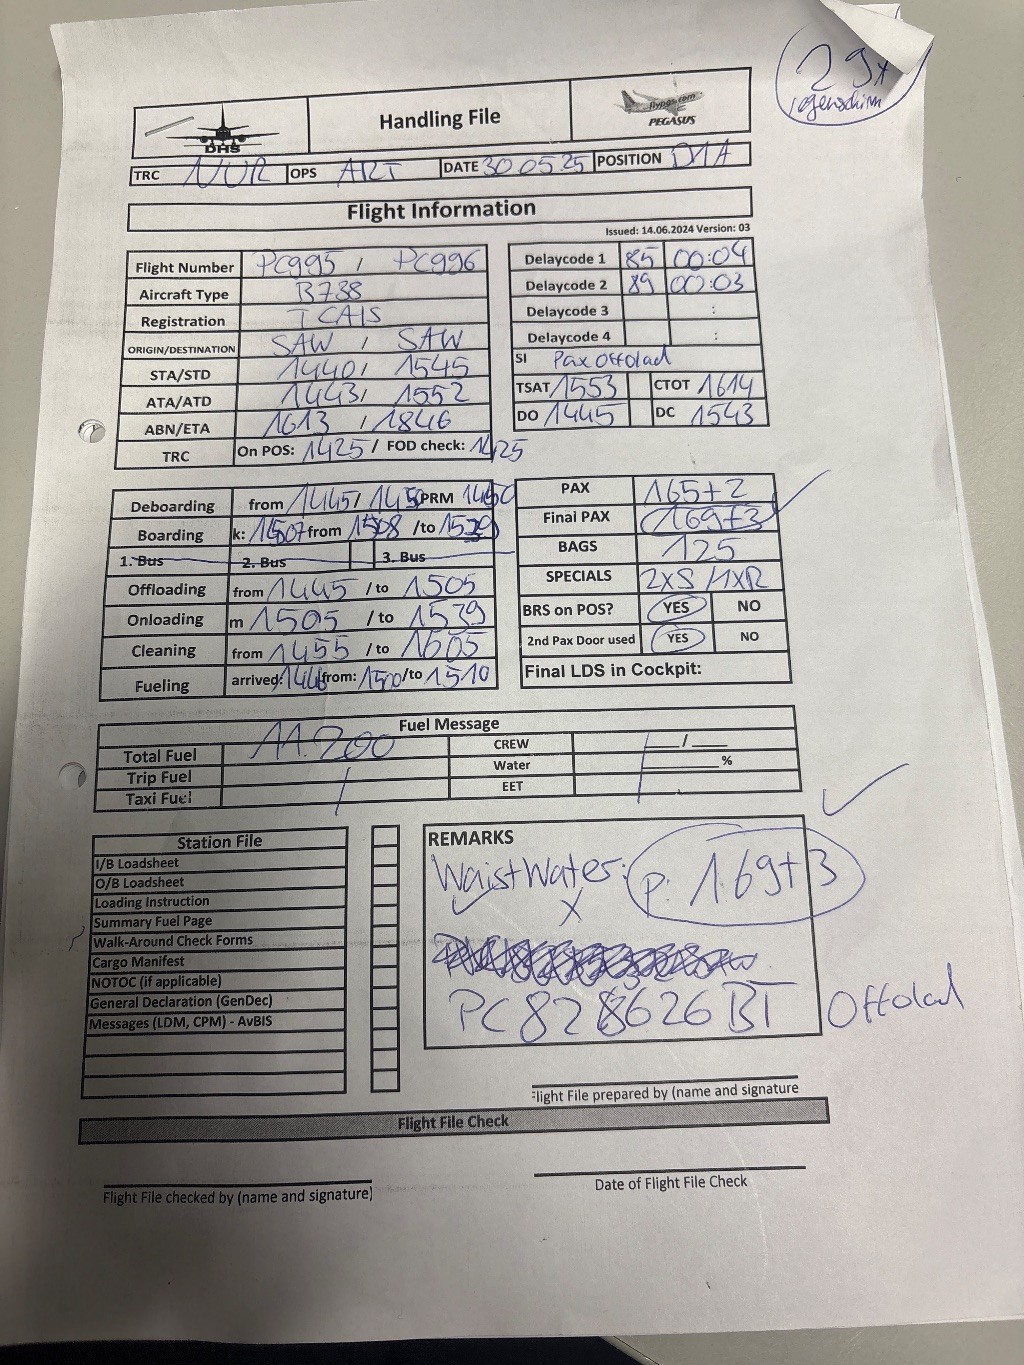 29x
DHS
Handling File
flypgs.com
PEGASUS
TRC NUR OPS ART DATE 30 05.25 POSITION D11A
Flight Information
Issued: 14.06.2024 Version: 03
Flight Number PC995 / PC996
Aircraft Type B738
Registration TCAIS
ORIGIN/DESTINATION SAW / SAW
STA/STD 1440 / 1545
ATA/ATD 1443 / 1552
ABN/ETA 1613 / 1846
TRC On POS: 1425 / FOD check: 1425
Delaycode 1 85 00:04
Delaycode 2 89 00:03
Delaycode 3 :
Delaycode 4 :
SI Pax Offolad
TSAT 1553 CTOT 1614
DO 1445 DC 1543
Deboarding from 1445 / 1450 PRM 1450
Boarding k: 1507 from 1508 /to 1539
1. Bus 2. Bus 3. Bus
Offloading from 1445 /to 1505
Onloading m 1505 /to 1539
Cleaning from 1455 /to 1605
Fueling arrived: 1446 from: 1500 /to 1510
PAX 165+2
Final PAX 169+3
BAGS 125
SPECIALS 2xS / 1xR
BRS on POS? YES NO
2nd Pax Door used YES NO
Final LDS in Cockpit:
Fuel Message
Total Fuel 11.200 CREW __/__
Trip Fuel / Water ____%
Taxi Fuel EET
Station File
I/B Loadsheet
O/B Loadsheet
Loading Instruction
Summary Fuel Page
Walk-Around Check Forms
Cargo Manifest
NOTOC (if applicable)
General Declaration (GenDec)
Messages (LDM, CPM) - AvBIS
REMARKS
WaistWater: P: 169+3
X
PC828626BT Offolad
Flight File prepared by (name and signature
Flight File Check
Flight File checked by (name and signature)
Date of Flight File Check